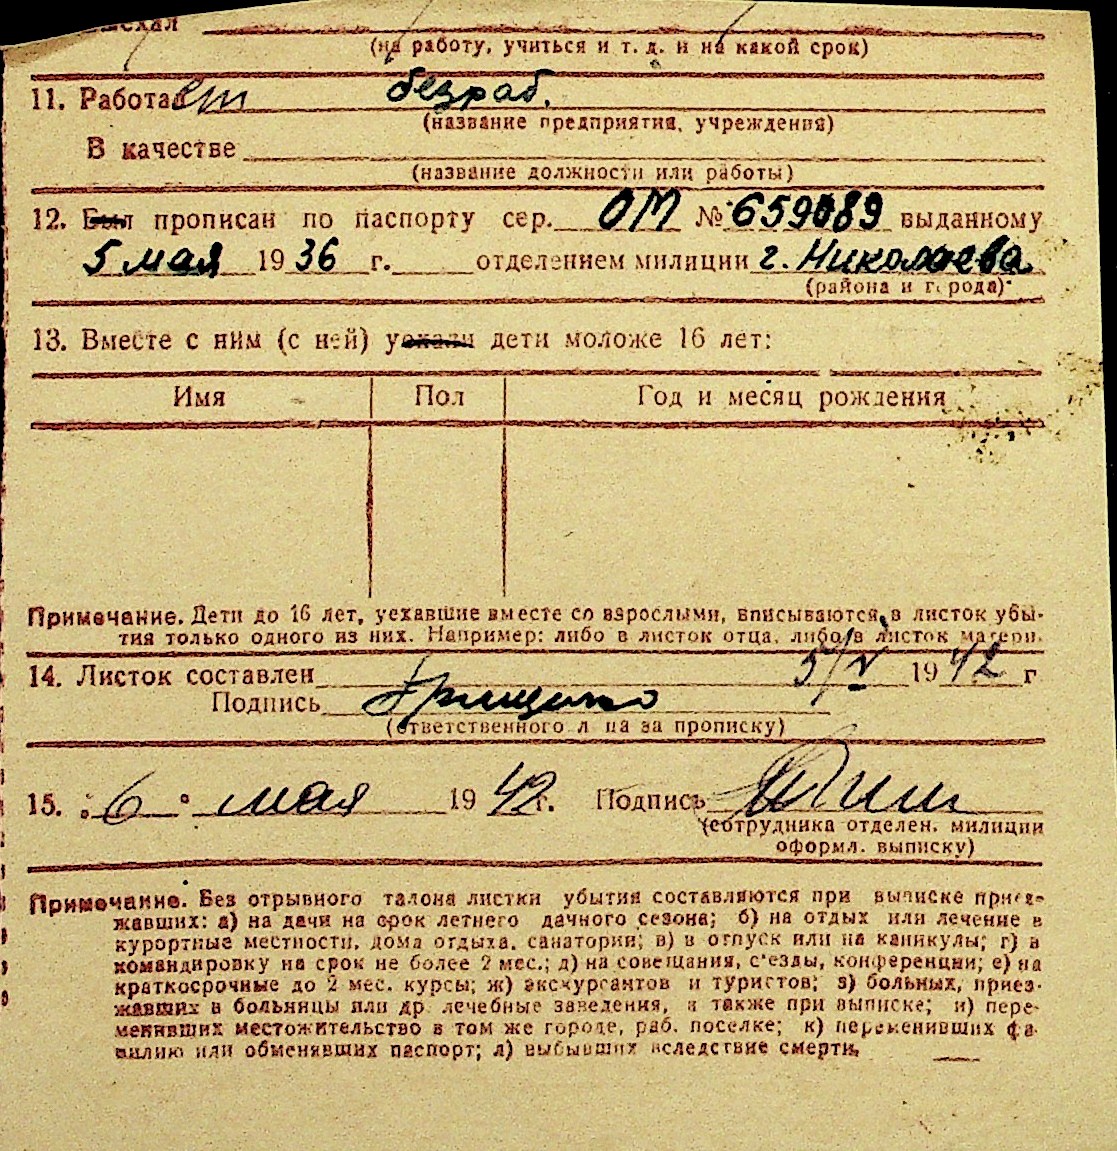 (на работу, учиться и т. д. и на какой срок)
11. Работает безраб.
(название предприятия, учреждения)
В качестве
(название должности или работы)
12. Был прописан по паспорту сер. ОМ № 659089 выданному
5 мая 1936 г. отделением милиции г. Николаева
(района и города)
13. Вместе с ним (с ней) уехали дети моложе 16 лет:
Имя Пол Год и месяц рождения
Примечание. Дети до 16 лет, уехавшие вместе со взрослыми, вписываются в листок убы-
тия только одного из них. Например: либо в листок отца, либо в листок матери.
14. Листок составлен 5/V 1942 г
Подпись Грищенко
(ответственного лица за прописку)
15. „6“ мая 1942 г. Подпись
(сотрудника отделен. милиции
оформл. выписку)
Примечание. Без отрывного талона листки убытия составляются при выписке приез-
жавших: а) на дачи на срок летнего дачного сезона; б) на отдых или лечение в
курортные местности, дома отдыха, санатории; в) в отпуск или на каникулы; г) в
командировку на срок не более 2 мес.; д) на совещания, с'езды, конференции; е) на
краткосрочные до 2 мес. курсы; ж) экскурсантов и туристов; з) больных, приез-
жавших в больницы или др. лечебные заведения, а также при выписке; и) пере-
менивших местожительство в том же городе, раб. поселке; к) переменивших фа-
милию или обменявших паспорт; л) выбывших вследствие смерти.